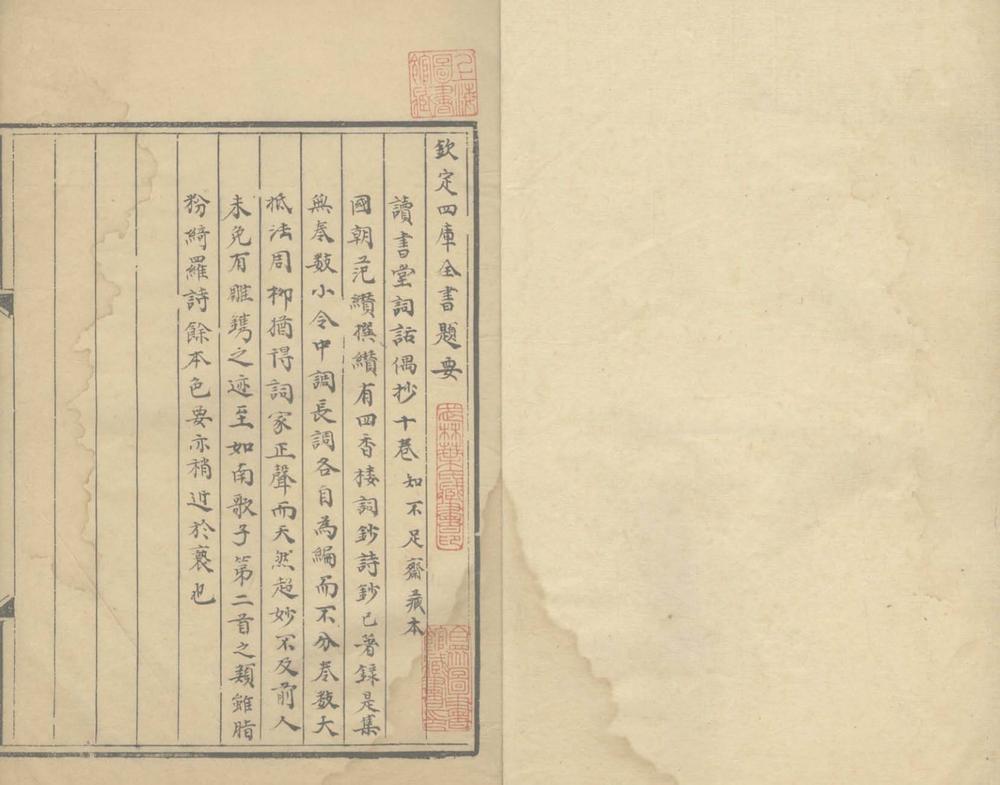 欽定四庫全書題要
讀書堂詞話偶抄十卷 知不足齋藏本
國朝范纘撰纘有四香樓詞鈔詩鈔已著録是集
無卷數小令中調長調各自為編而不分卷數大
抵法周柳猶得詞家正聲而天然超妙不及前人
未免有雕鐫之迹至如南歌子第二首之類雖脂
粉綺羅詩餘本色要亦稍近於褻也
上海圖書館藏
武林葉氏藏書印
合眾圖書館藏書印